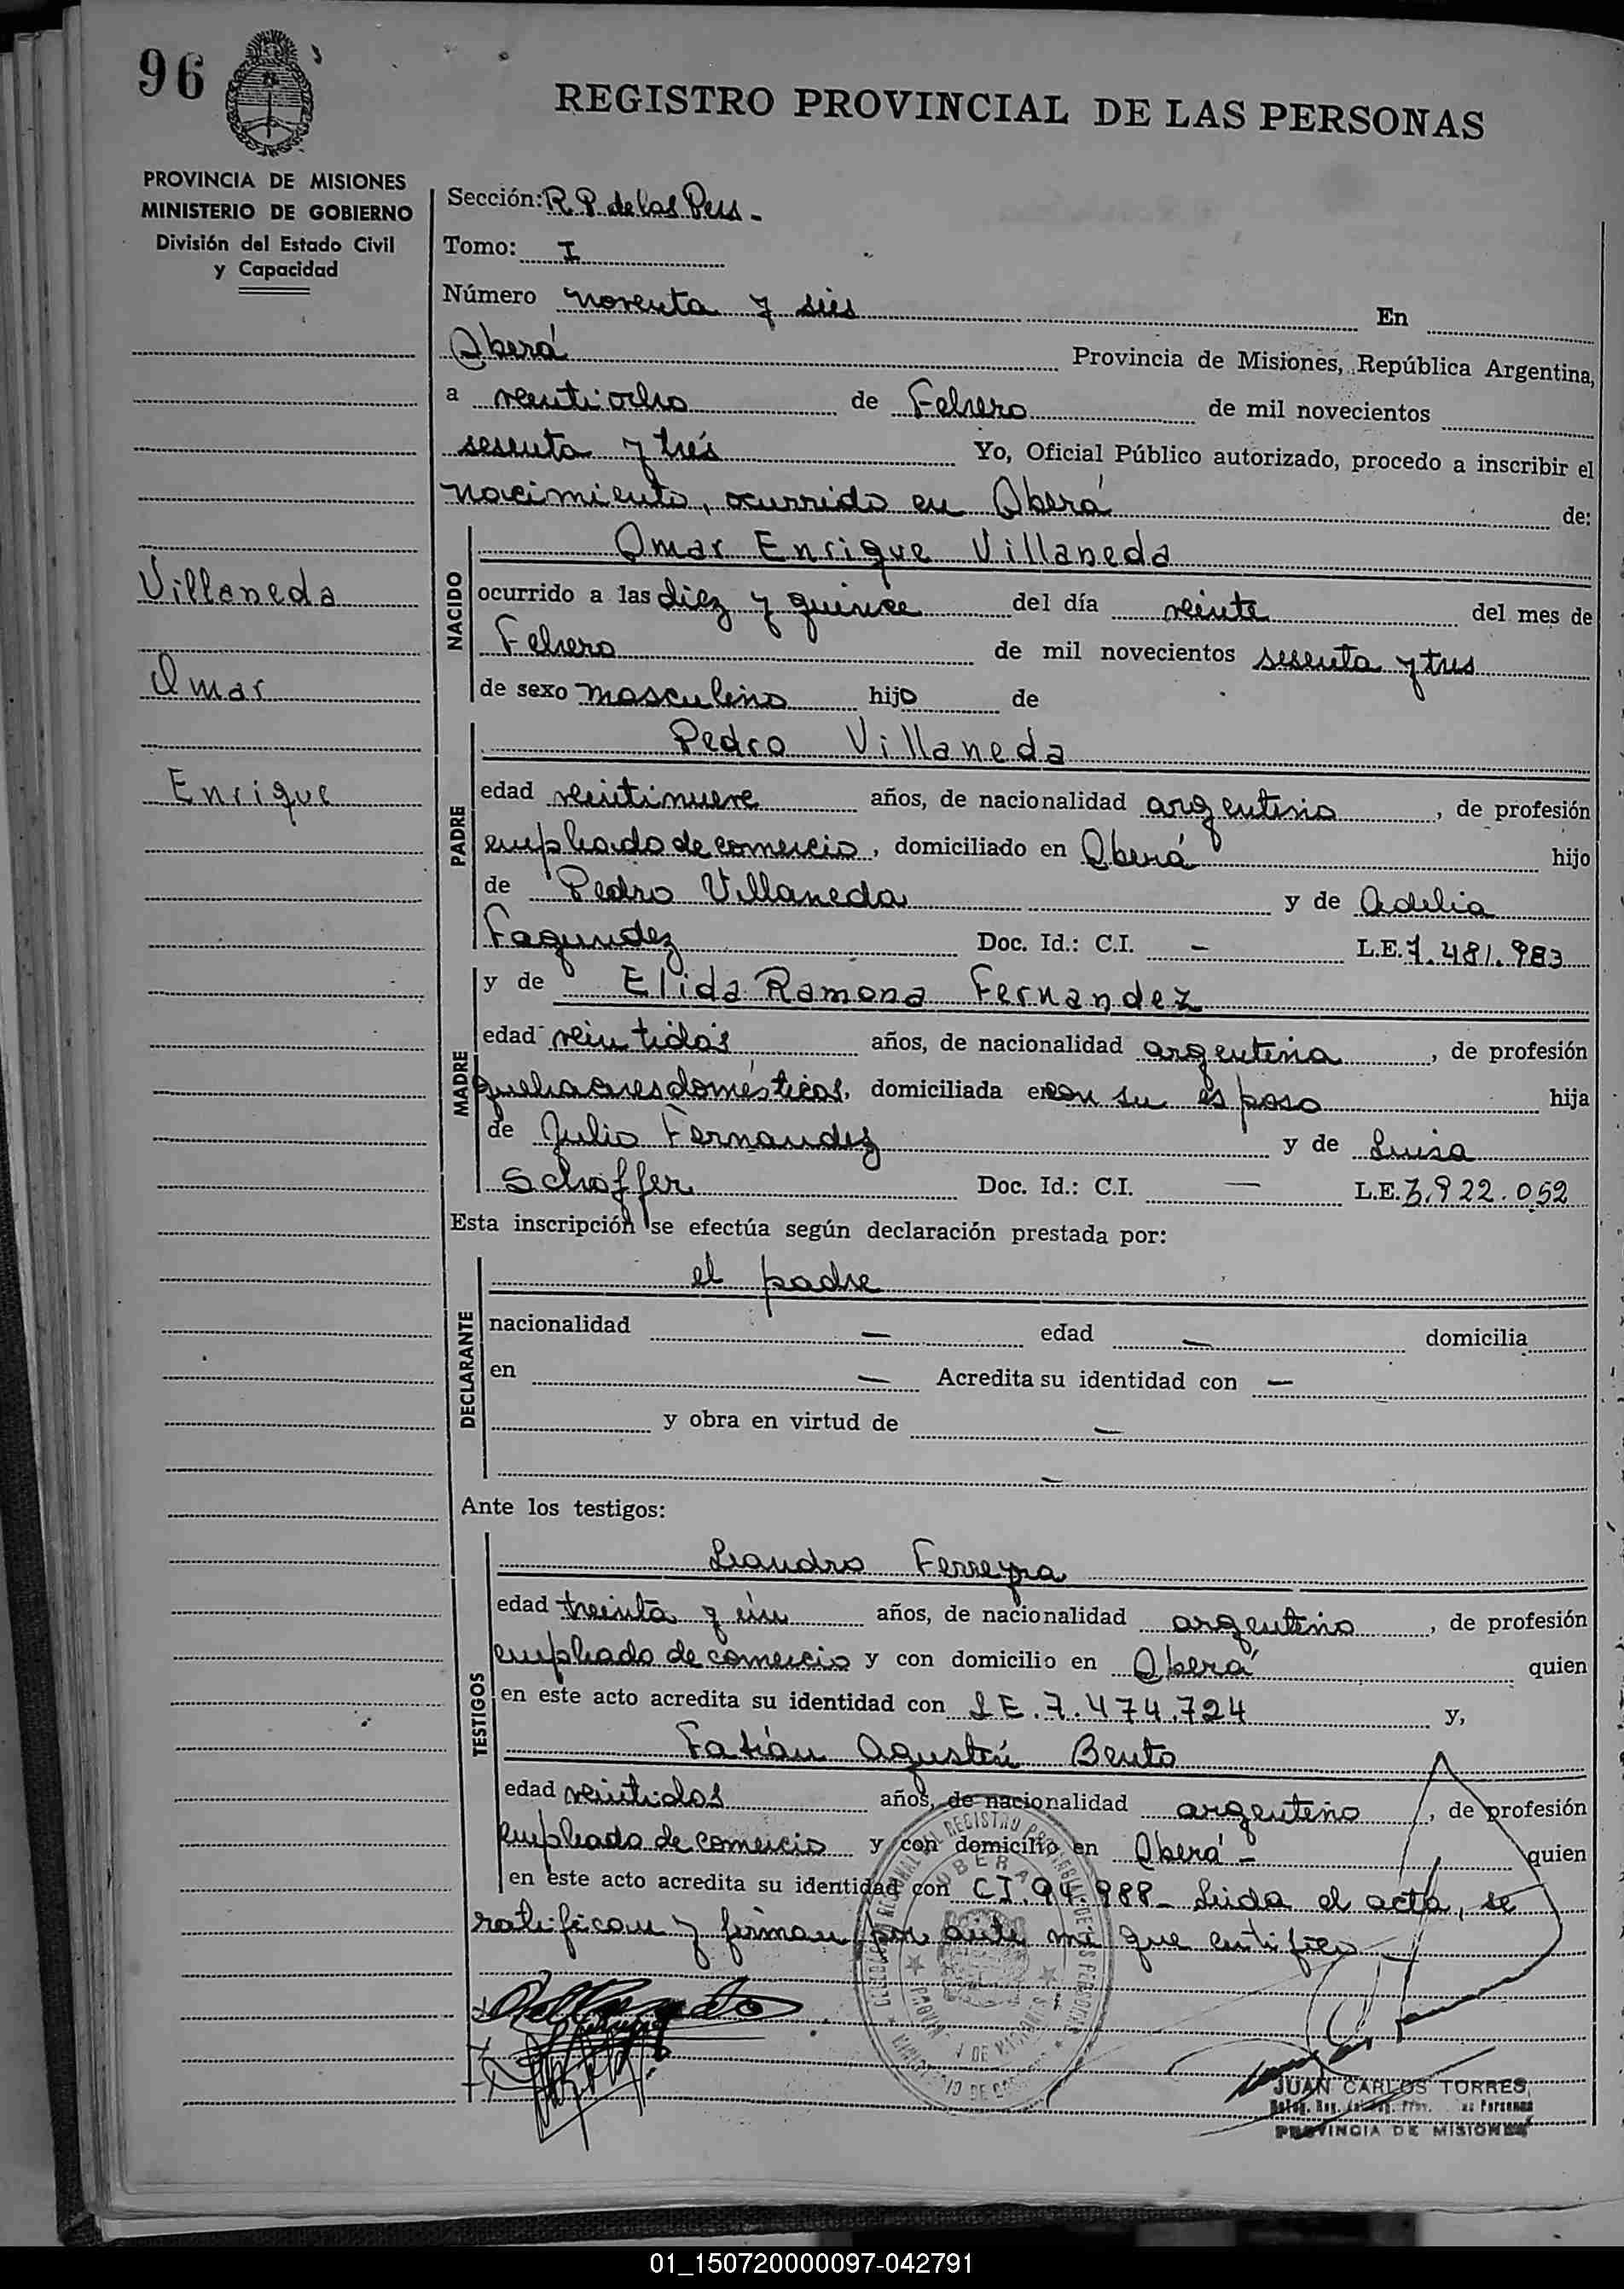 96
REGISTRO PROVINCIAL DE LAS PERSONAS
PROVINCIA DE MISIONES
MINISTERIO DE GOBIERNO
División del Estado Civil
y Capacidad
Villaneda
Omar
Enrique
Sección: R. P. de las Pers -
Tomo: I
Número noventa y seis En
Oberá Provincia de Misiones, República Argentina,
a veintiocho de Febrero de mil novecientos
sesenta y trés Yo, Oficial Público autorizado, procedo a inscribir el
nacimiento, ocurrido en Oberá de:
NACIDO
Omar Enrique Villaneda
ocurrido a las diez y quince del día veinte del mes de
Febrero de mil novecientos sesenta y tres
de sexo masculino hijo de
PADRE
Pedro Villaneda
edad veintinueve años, de nacionalidad argentino, de profesión
empleado de comercio, domiciliado en Oberá hijo
de Pedro Villaneda y de Adelia
Fagundez Doc. Id.: C.I. - L.E. 7.481.983
MADRE
y de Elida Ramona Fernandez
edad veintidós años, de nacionalidad argentina, de profesión
quehaceres domésticos, domiciliada en con su esposo hija
de Julio Fernandez y de Luisa
Schoffer Doc. Id.: C.I. — L.E. 3.922.052
Esta inscripción se efectúa según declaración prestada por:
DECLARANTE
el padre
nacionalidad — edad — domicilia
en — Acredita su identidad con —
y obra en virtud de —
—
Ante los testigos:
TESTIGOS
Leandro Ferreyra
edad treinta y un años, de nacionalidad argentino, de profesión
empleado de comercio y con domicilio en Oberá quien
en este acto acredita su identidad con L E. 7.474.724 y,
Fabián Agustín Bento
edad veintidos años, de nacionalidad argentino, de profesión
empleado de comercio y con domicilio en Oberá - quien
en este acto acredita su identidad con C I. 94.988 - Leida el acta, se
ratifican y firman por ante mi que certifico -
OBERA
JUAN CARLOS TORRES
PROVINCIA DE MISIONES
01_150720000097-042791